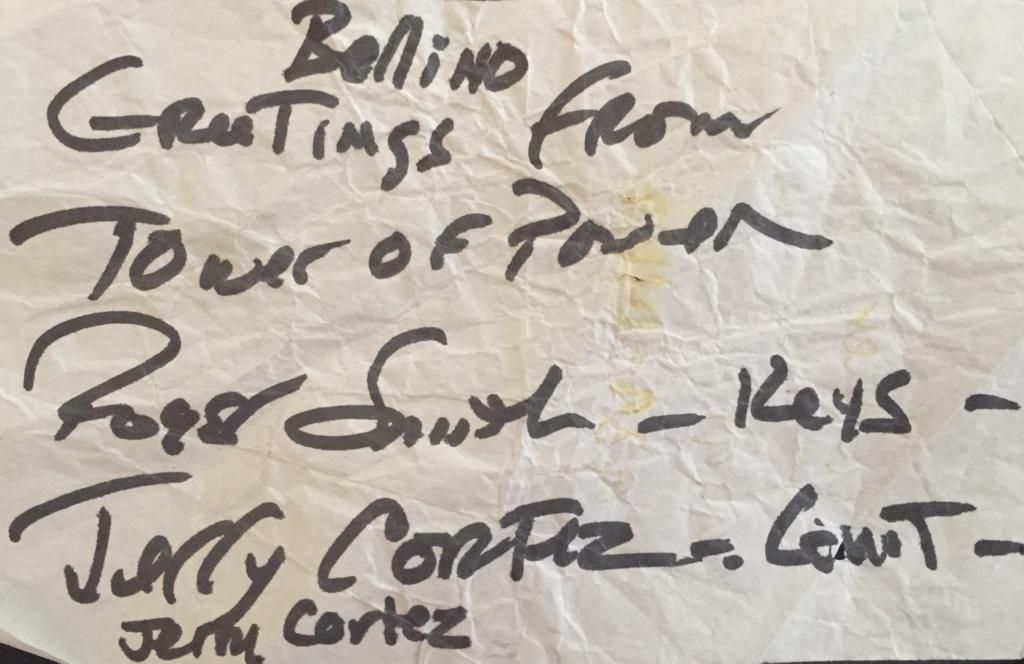 Bellino
Greetings From
Tower of Power
Roger Smith - Keys -
Jerry Cortez -
Jerry Cortez